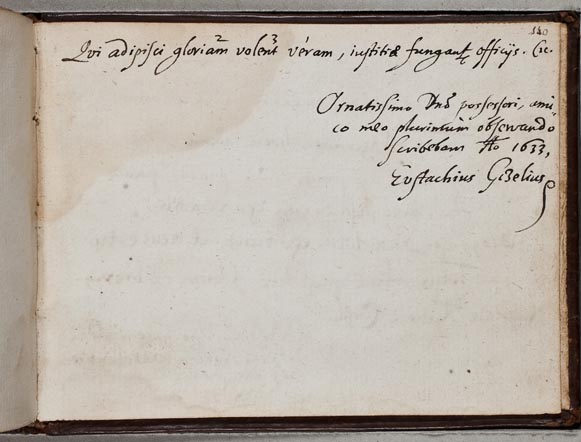 140
Qui adipisci gloriam² volent³ véram, iustitiæ fungantr officijs. Cic.
Ornatissimo Dnō possessori, ami=
co meo plurimum observando
scribebam Ao 1633,
Eustachius Gizelius